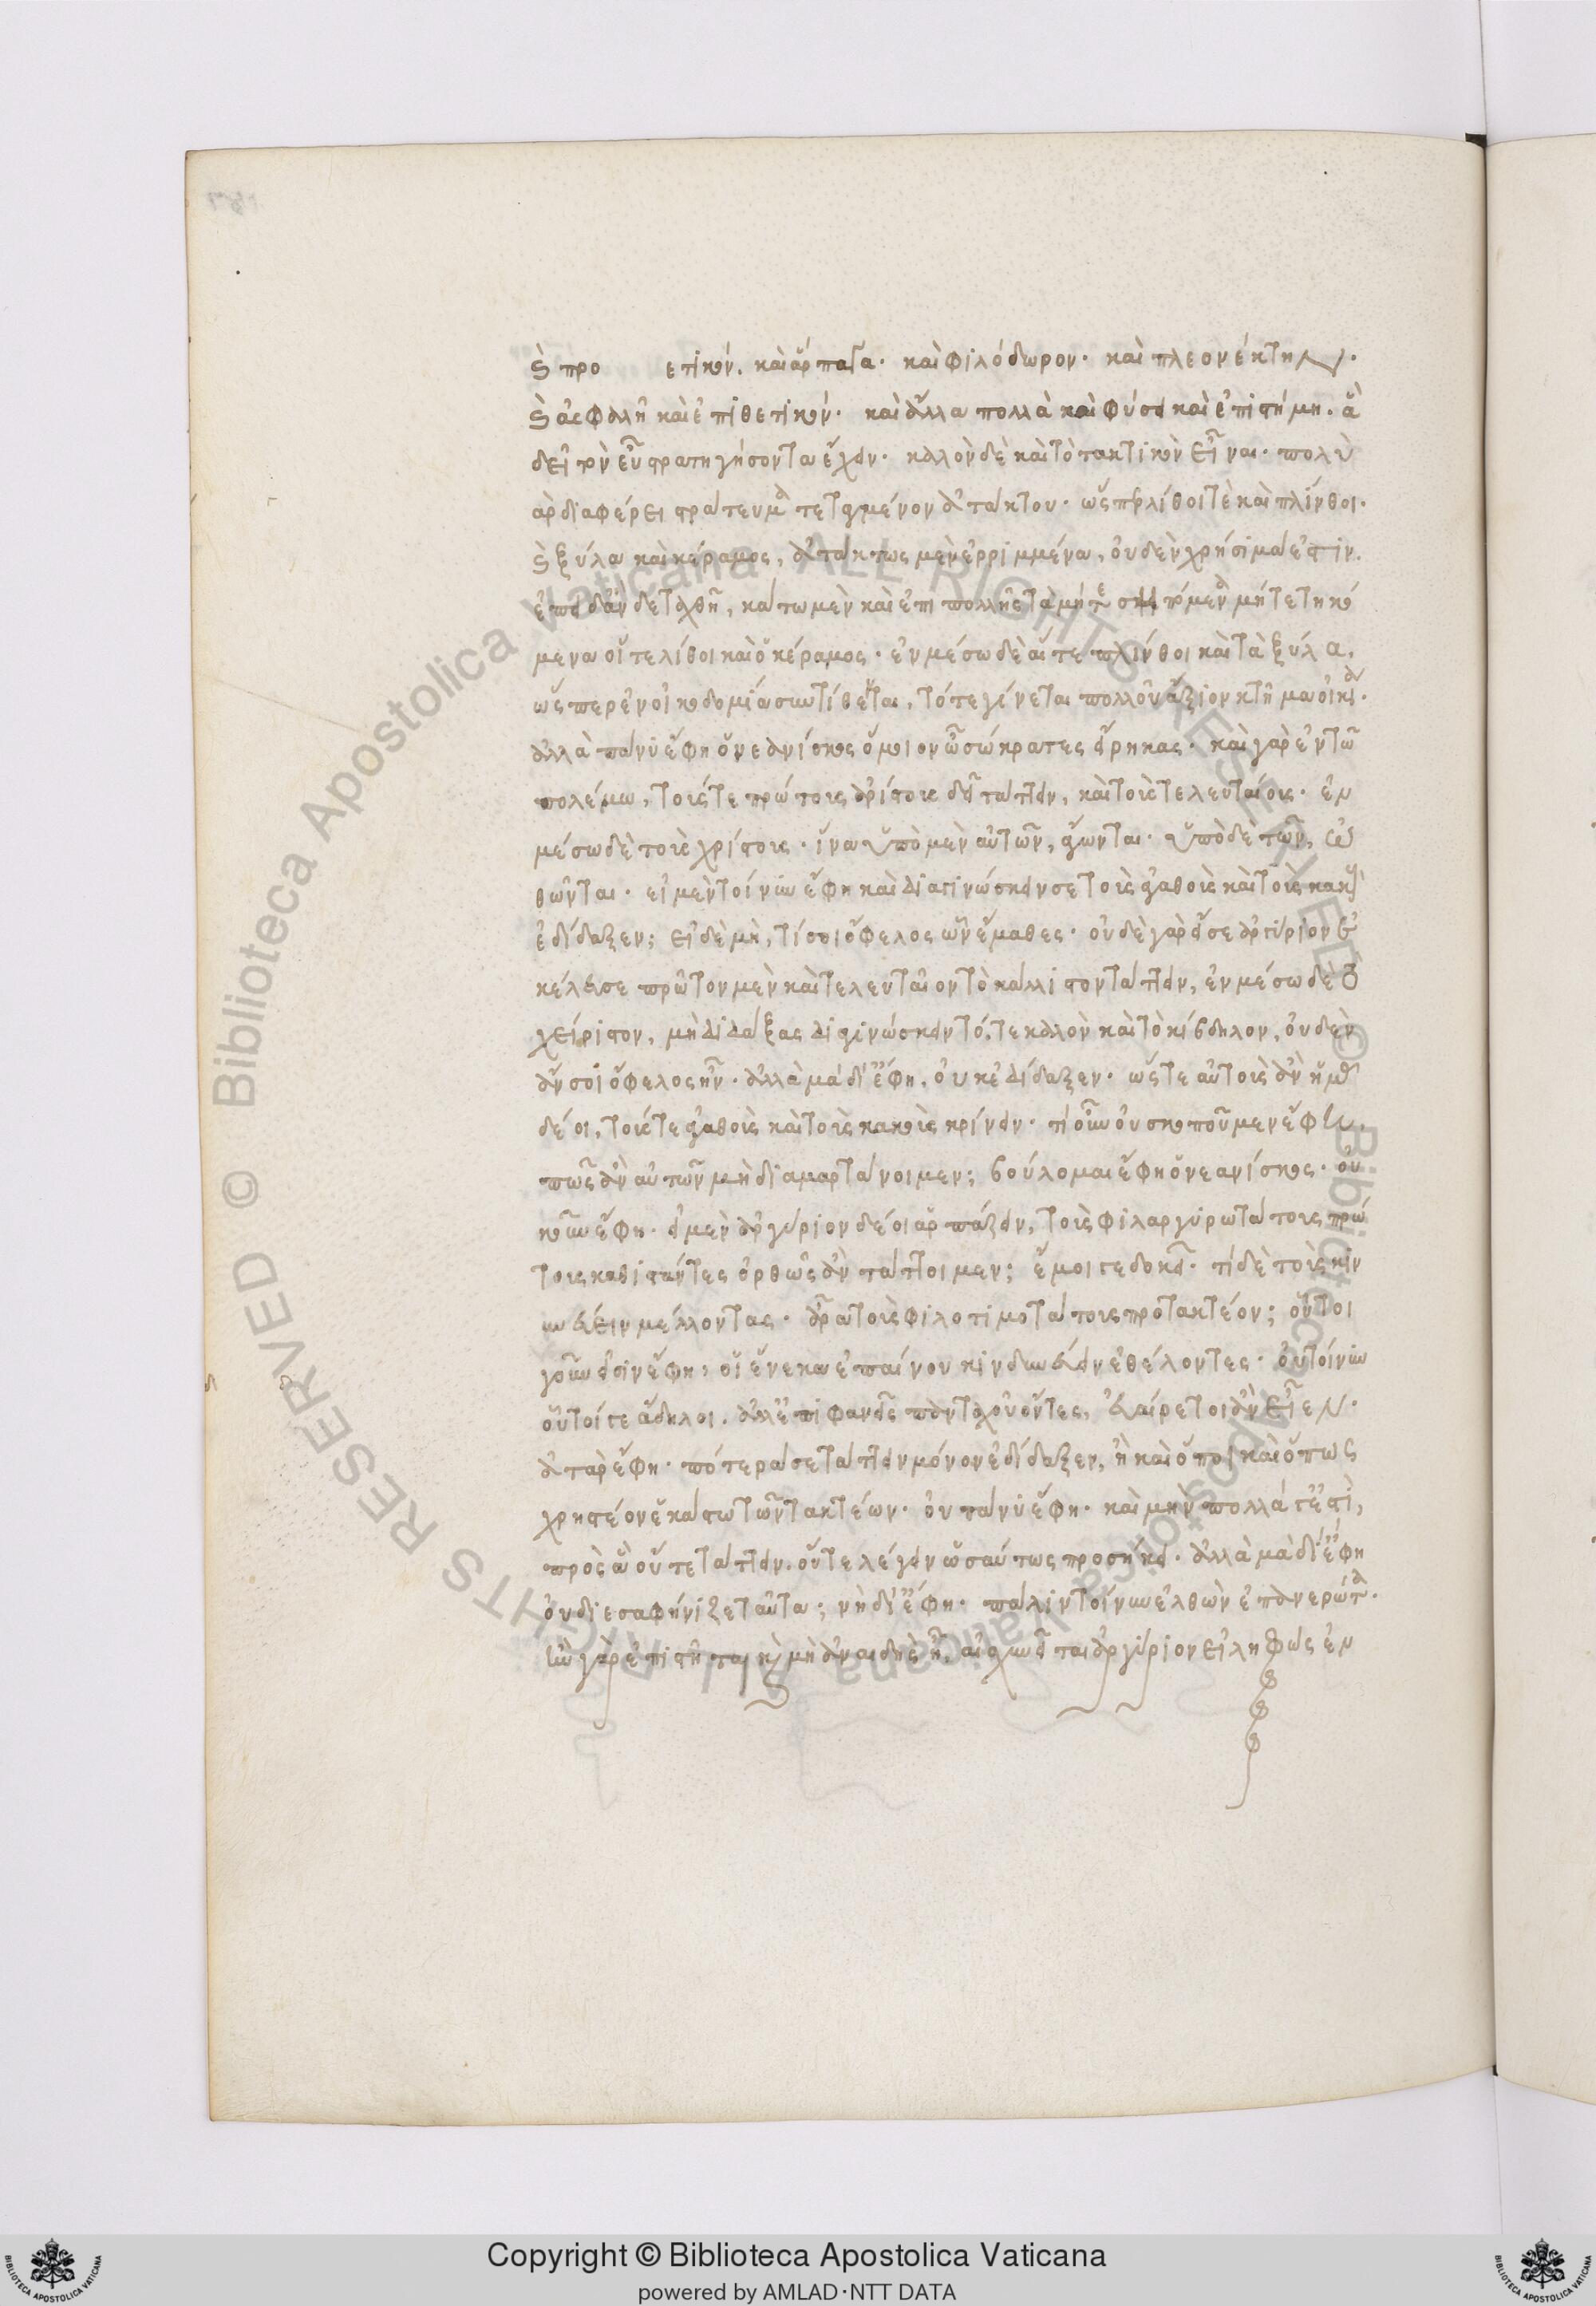 καὶ προ ετικὸν. καὶ ἅρπαγα· καὶ φιλόδωρον· καὶ πλεονέκτην.
καὶ ἀσφαλῆ καὶ ἐπιθετικόν· καὶ ἄλλα πολλὰ καὶ φύσει καὶ ἐπιστήμη. ἃ
δεῖ τὸν εὖ στρατηγήσοντα ἔχειν· καλὸν δὲ καὶ τὸ τακτικὸν εἶναι· πολὺ
γὰρ διαφέρει στράτευμα τεταγμένον ἀτάκτου· ὥσπερ λίθοι τὲ καὶ πλίνθοι.
καὶ ξύλα καὶ κέραμος, ἀτάκτως μὲν ἐρριμμένα, οὐδὲν χρήσιμά ἐστιν.
ἐπειδὰν δὲ ταχθῆ, κάτω μὲν καὶ ἐπιπολῆς τὰ μήτε σηπόμενα μήτε τηκό
μενα οἵ τε λίθοι καὶ ὁ κέραμος· ἐν μέσω δὲ αἵ τε πλίνθοι καὶ τὰ ξύλα,
ὥσπερ ἐν οἰκοδομία συντίθεται, τότε γίνεται πολλοῦ ἄξιον κτῆμα οἰκία.
ἀλλὰ πάνυ ἔφη ὁ νεανίσκος ὅμοιον ὦ σώκρατες εἴρηκας· καὶ γὰρ ἐν τῶ
πολέμω, τούς τε πρώτους ἀρίστους δεῖ τάττειν, καὶ τοὺς τελευταίους· ἐν
μέσω δὲ τοὺς χρίστους· ἵνα ὑπὸ μὲν αὐτῶν, ἄγωνται· ὑπὸ δὲ τῶν, ὠ
θῶνται· εἰ μὲν τοίνυν ἔφη καὶ διαγινώσκειν σε τοὺς ἀγαθοὺς καὶ τοὺς κακοὺς
ἐδίδαξεν; εἰ δὲ μὴ, τί σοι ὄφελος ὧν ἔμαθες· οὐδὲ γὰρ εἴ σε ἀργύριον ἐ
κέλευσε πρῶτον μὲν καὶ τελευταῖον τὸ κάλλιστον τάττειν, ἐν μέσω δὲ τὸ
χείριστον, μὴ διδάξας διαγινώσκειν τό, τε καλὸν καὶ τὸ κίβδηλον, οὐδὲν
ἄν σοι ὄφελος ἦν· ἀλλὰ μὰ δί' ἔφη, οὐκ ἐδίδαξεν· ὥστε αὐτοὺς ἂν ἡμᾶς
δέοι, τούς τε ἀγαθοὺς καὶ τοὺς κακοὺς κρίνειν· τί οὖν οὐ σκοποῦμεν ἔφη.
πῶς ἂν αὐτῶν μὴ διαμαρτάνοιμεν; βούλομαι ἔφη ὁ νεανίσκος· οὐ
κοῦν ἔφη· εἰ μὲν ἀργύριον δέοι ἁρπάζειν, τοὺς φιλαργυρωτάτους πρώ
τους καθιστάντες ὀρθῶς ἂν τάττοιμεν; ἔμοιγε δοκεῖ· τί δὲ τοὺς κιν
δυνεύειν μέλλοντας· ἆρα τοὺς φιλοτιμοτάτους προτακτέον; οὗτοι
γοῦν εἰσὶν ἔφη, οἱ ἕνεκα ἐπαίνου κινδυνεύειν ἐθέλοντες· οὐ τοίνυν
οὗτοί γε ἄδηλοι. ἀλλ' ἐπιφανεῖς πανταχοῦ ὄντες, εὐαίρετοι ἂν εἶεν·
ἀτὰρ ἔφη· πότερά σε τάττειν μόνον ἐδίδαξεν, ἢ καὶ ὅποι καὶ ὅπως
χρηστέον ἑκάστω τῶν τακτέων· οὐ πάνυ ἔφη· καὶ μὴν πολλά γ' ἐστὶ,
πρὸς ἃ οὔτε τάττειν. οὔτε λέγειν ὡσαύτως προσήκει· ἀλλὰ μὰ δί' ἔφη
οὐ διεσαφήνιζε ταῦτα; νὴ δί' ἔφη· πάλιν τοίνυν ἐλθὼν ἐπανερώτα·
ἢν γὰρ ἐπίστηται καὶ μὴ ἀναιδὴς ἦ, αἰσχυνεῖται ἀργύριον εἰληφὼς ἐν